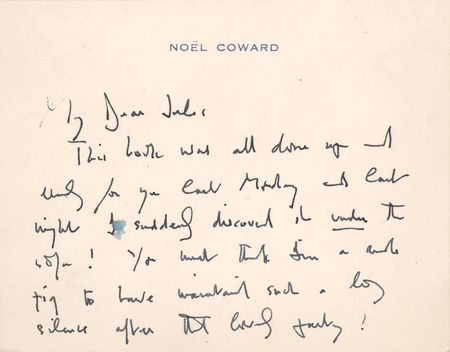 NOËL COWARD
My Dear Jules
This book was all done up and
ready for you last Monday and last
night I suddenly discovered it under the
sofa! You must think I'm a rude
pig to have maintained such a long
silence after that lovely party!